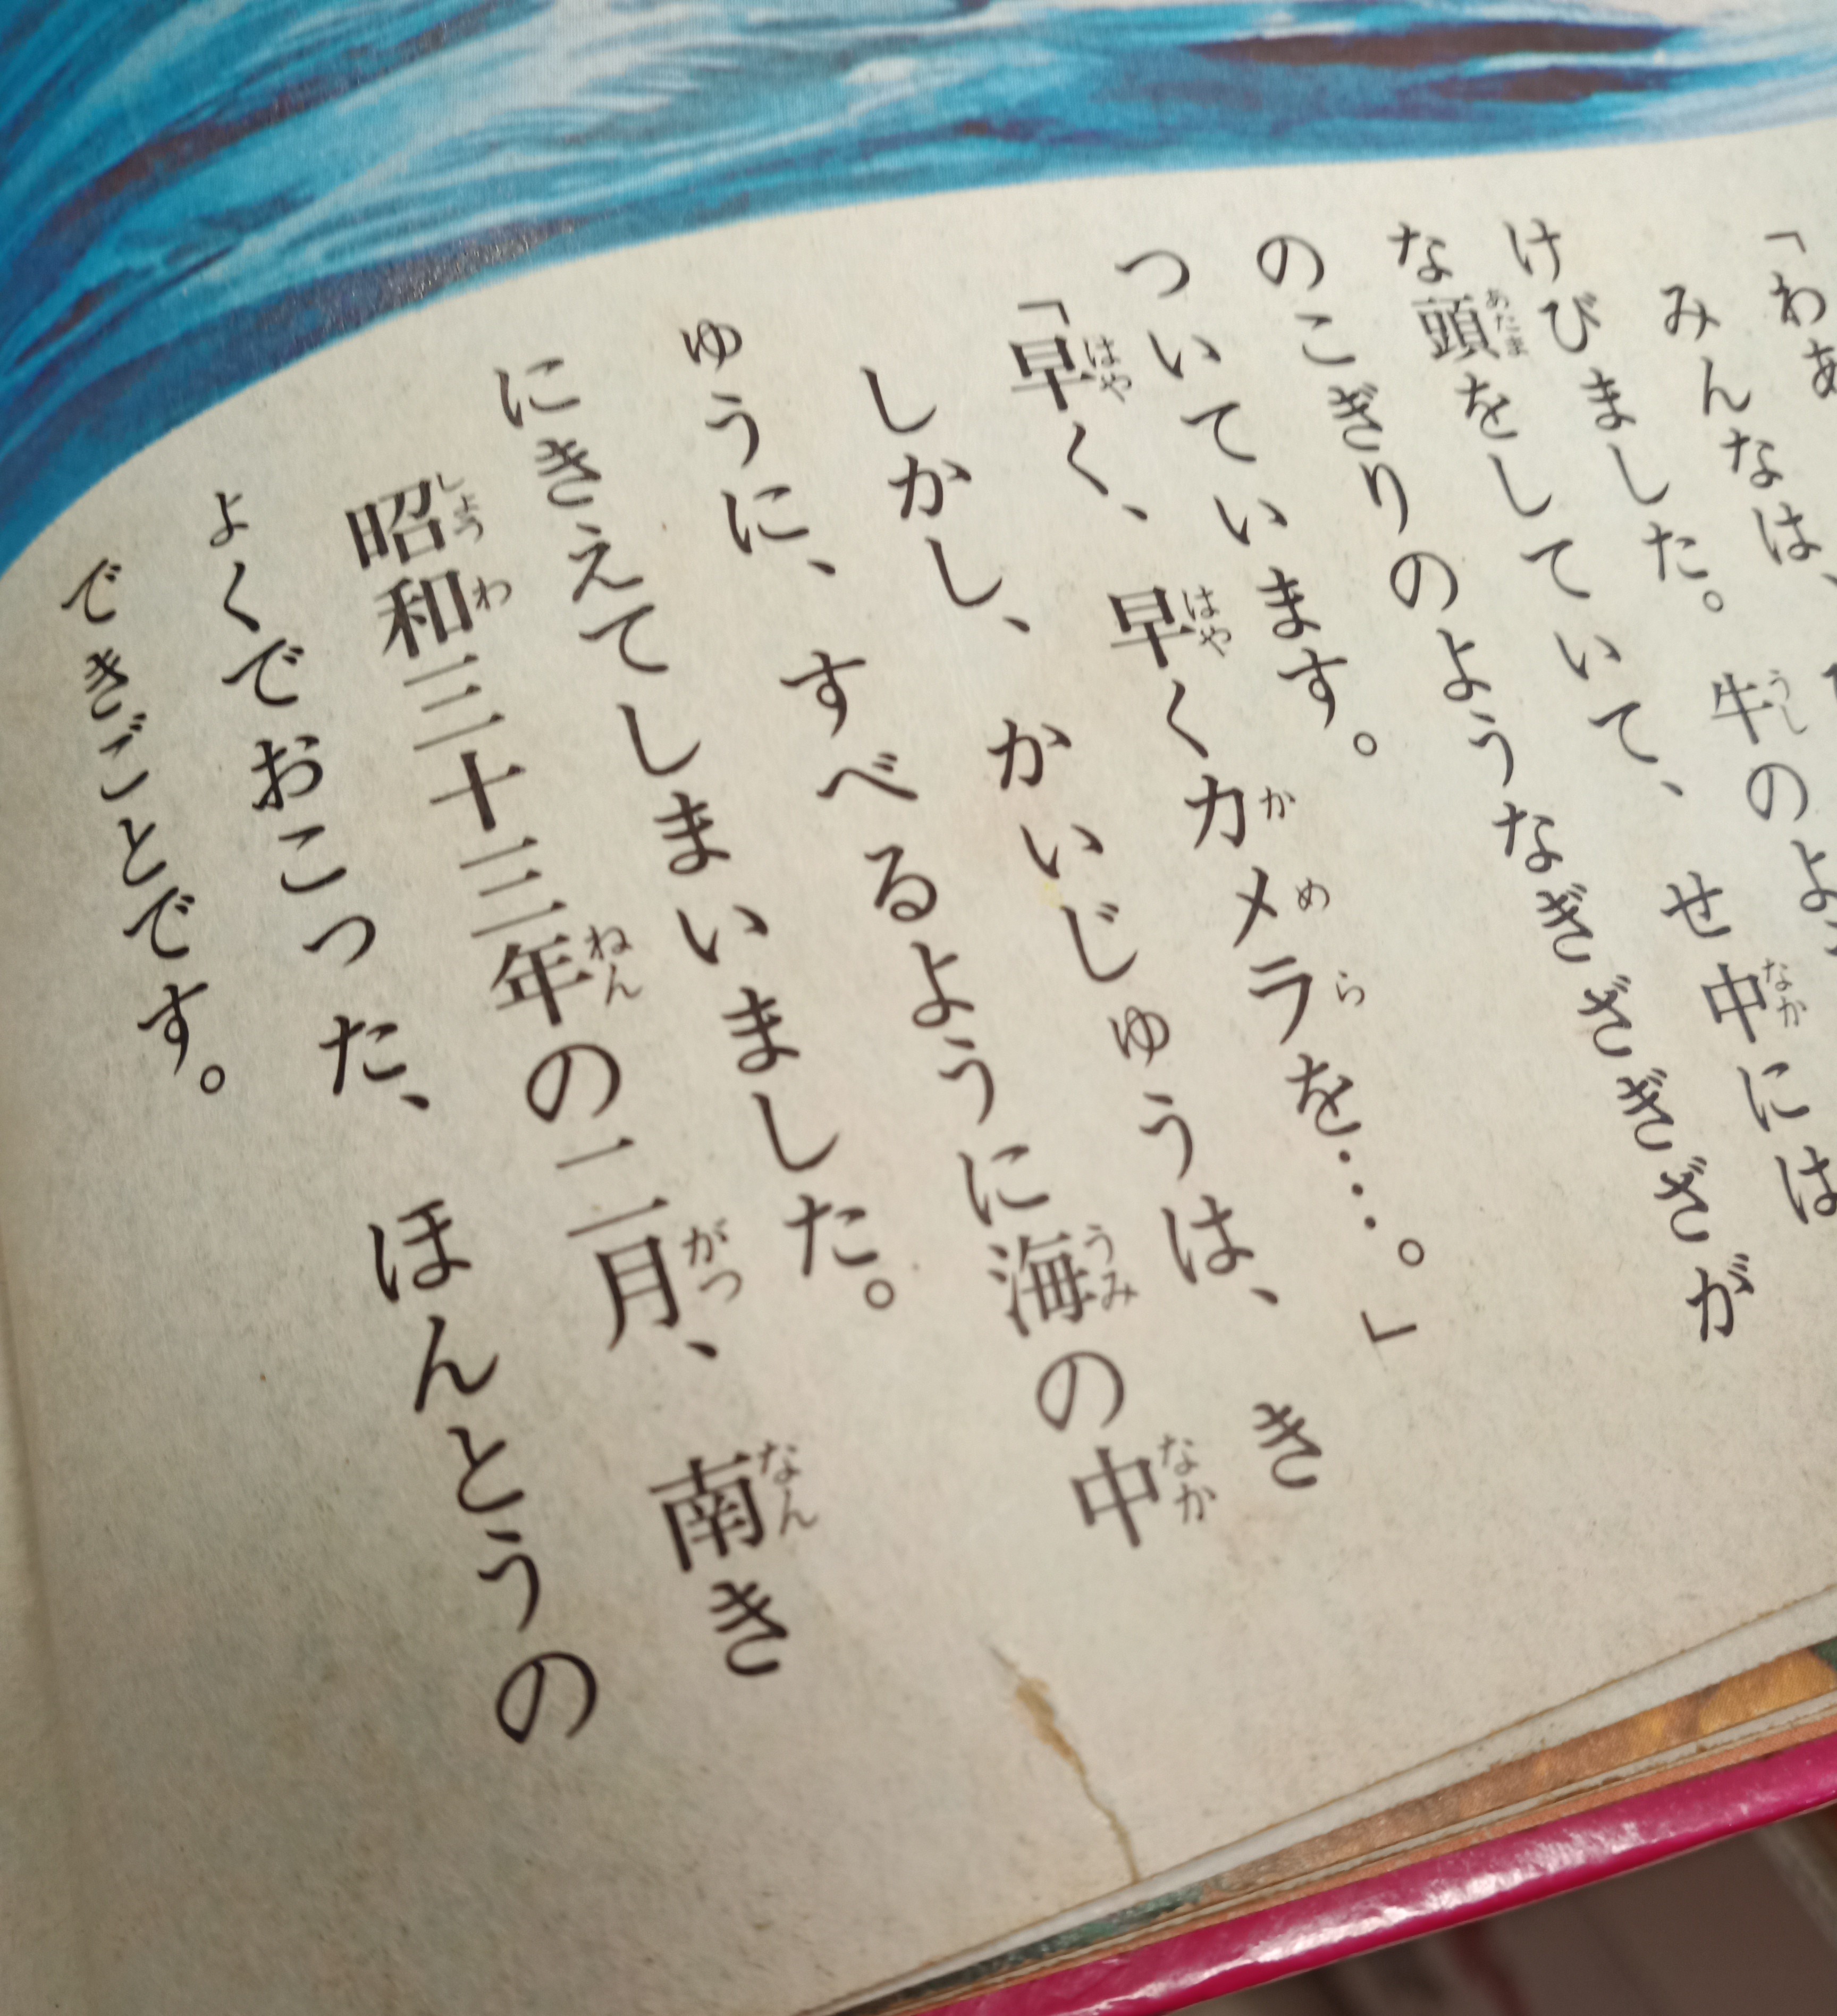 「わあ
みんなは、
けびました。牛のよう
な頭をしていて、せ中には
のこぎりのようなぎざぎざが
ついています。
「早く、早くカメラを…。」
しかし、かいじゅうは、き
ゅうに、すべるように海の中
にきえてしまいました。
昭和三十三年の二月、南き
よくでおこった、ほんとうの
できごとです。